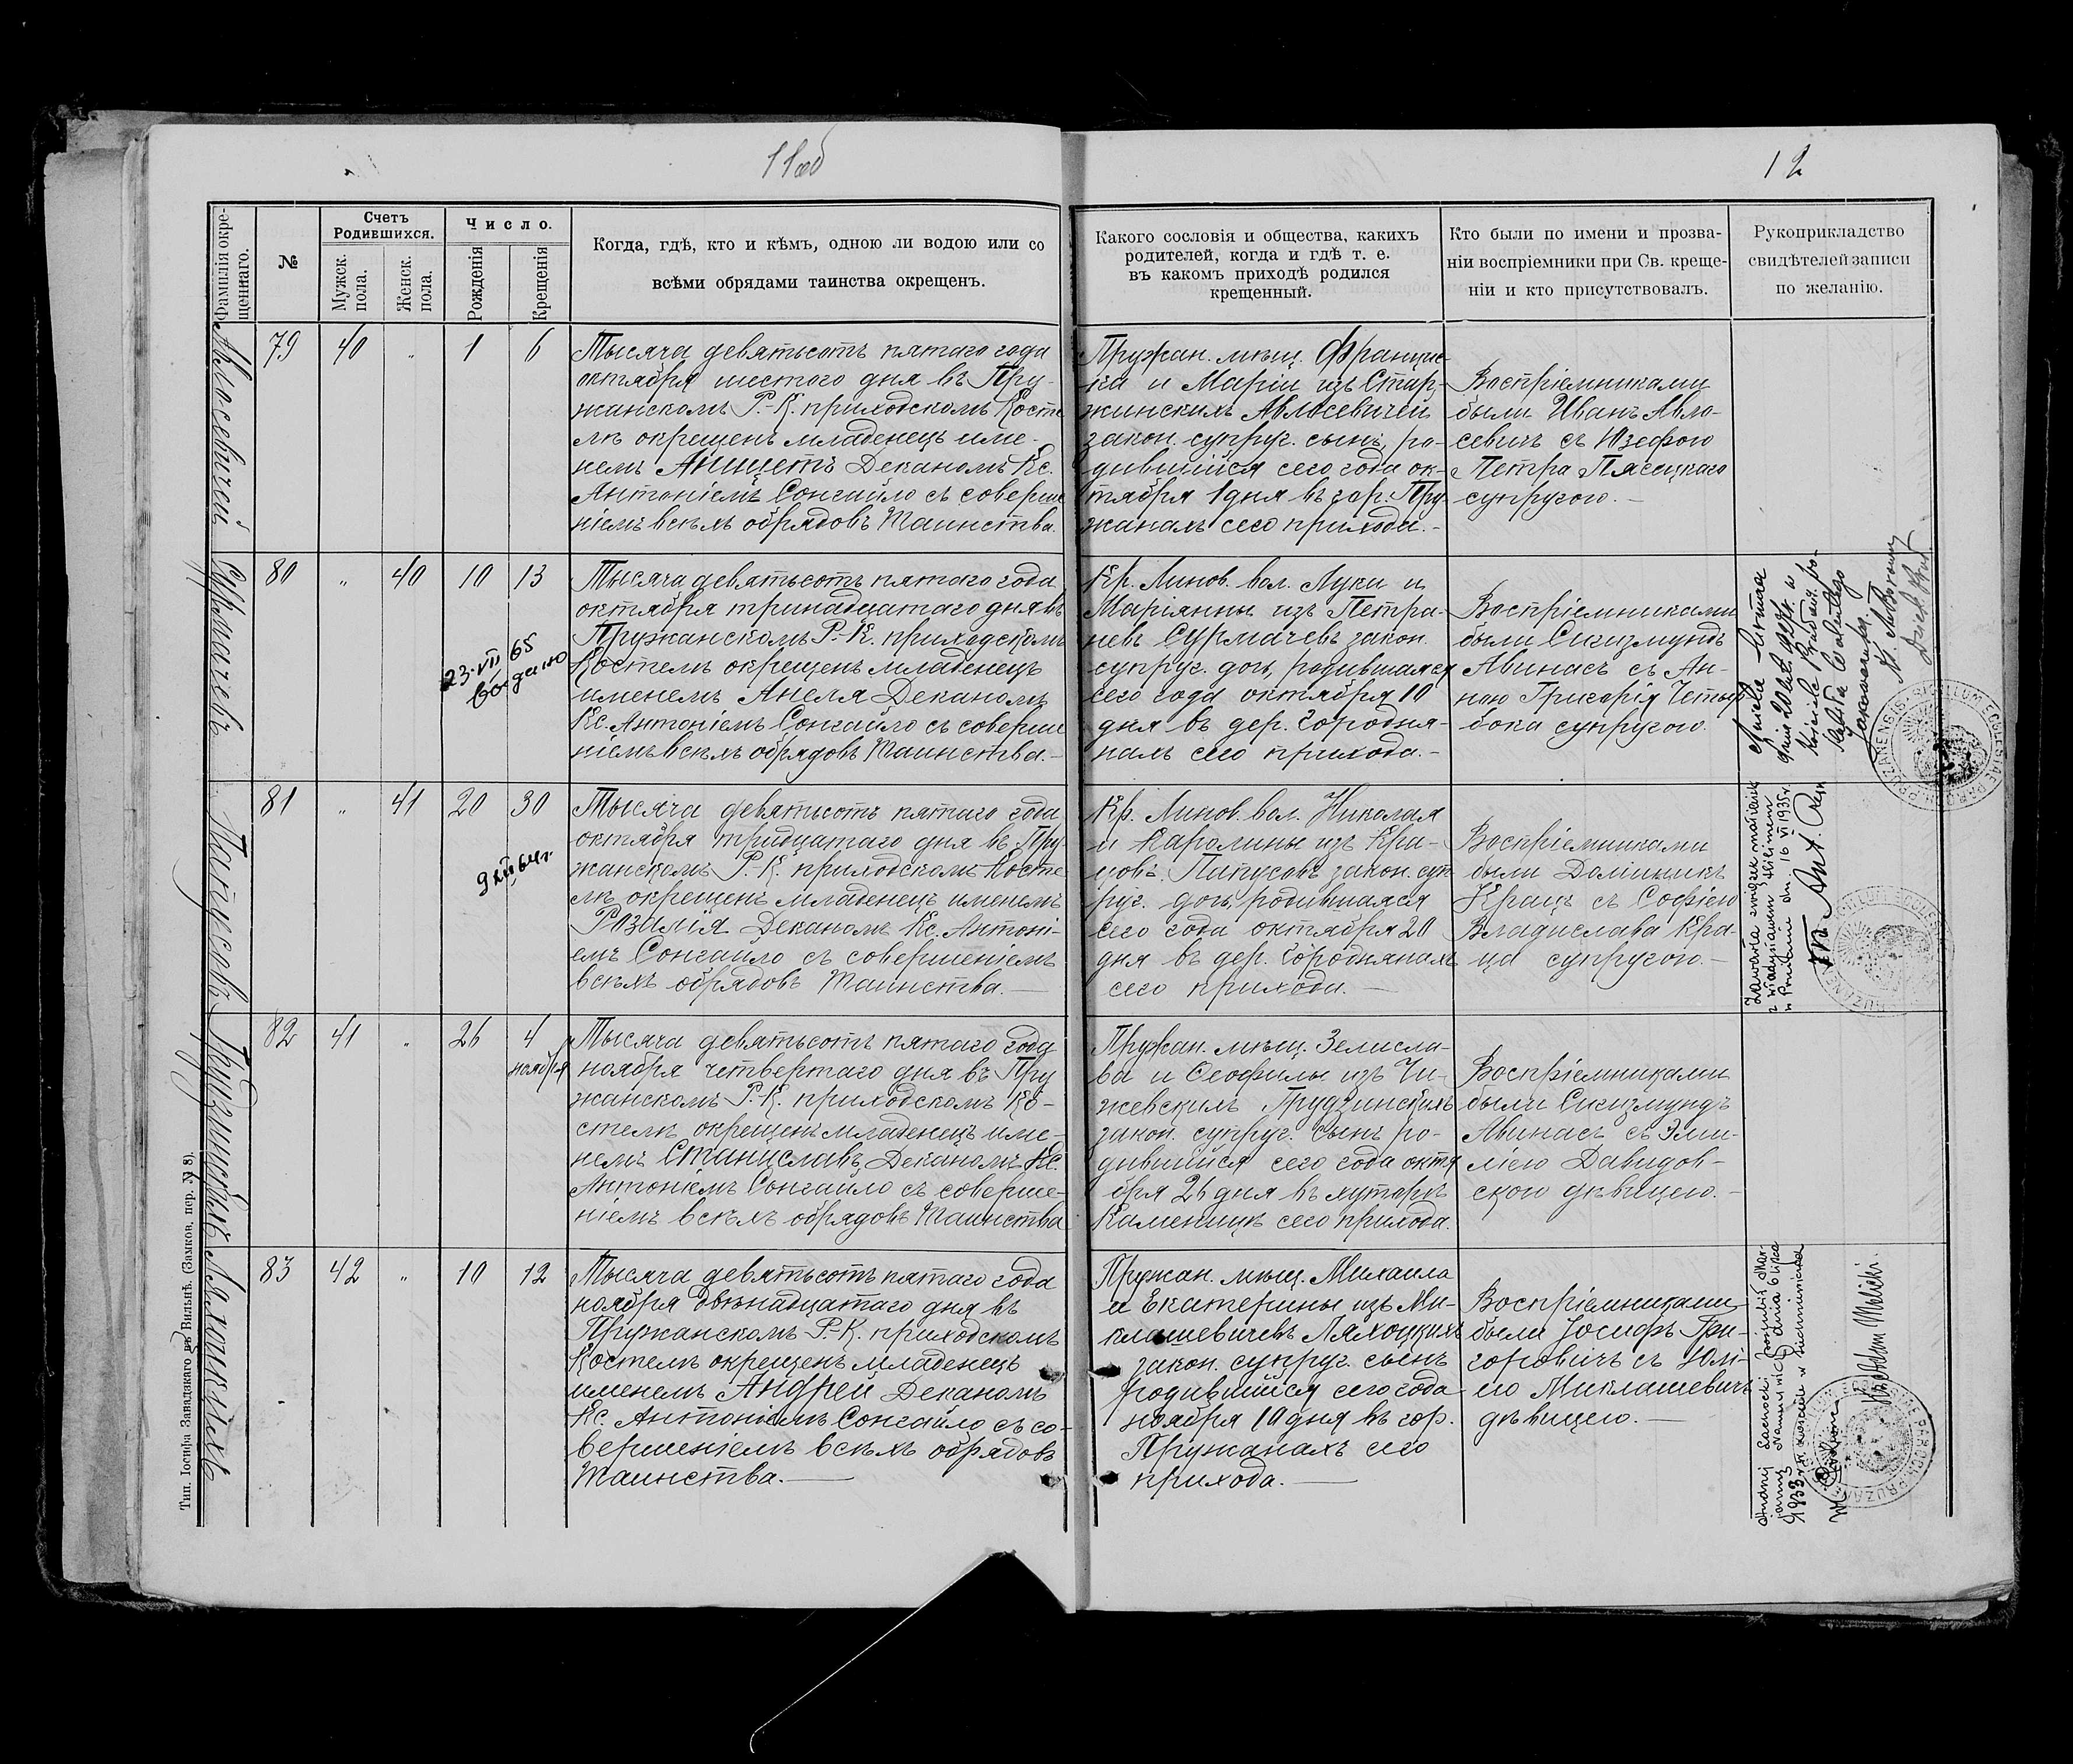 11об
12
Фамилія окрещеннаго.
№
Счетъ Родившихся.
Мужск. пола.
Женск. пола.
Число.
Рожденія
Крещенія
Когда, гдѣ, кто и кѣмъ, одною ли водою или со
всѣми обрядами таинства окрещенъ.
Какого сословія и общества, какихъ
родителей, когда и гдѣ т. е.
въ какомъ приходѣ родился
крещенный.
Кто были по имени и прозва-
ніи воспріемники при Св. креще-
ніи и кто присутствовалъ.
Рукоприкладство
свидѣтелей записи
по желанію.
Авлосевичей
79 40 " 1 6
Тысяча девятьсотъ пятаго года
октября шестого дня въ Пру-
жанскомъ Р.-К. приходскомъ Косте
лѣ окрещенъ младенецъ име-
немъ Аницетъ Деканомъ Кс.
Антоніемъ Сонгайло съ соверше
ніемъ всѣхъ обрядовъ Таинства.
Пружан. мѣщ. Францис-
ка и Маріи изъ Старж-
жинскихъ Авлосевичей
закон. супруг. сынъ, ро-
дившійся сего года ок-
тября 1 дня въ гор. Пру-
жанахъ сего прихода.-
Воспріемниками
были Иванъ Авло-
севичъ съ Юзефою
Петра Пясецкаго
супругою.-
Сурмачевъ
80 " 40 10 13
23.VII 65
Тысяча девятьсотъ пятаго года
октября тринадцатаго дня въ
Пружанскомъ Р.-К. приходскомъ
Костелѣ окрещенъ младенецъ
именемъ Анеля Деканомъ
Кс. Антоніемъ Сонгайло съ соверше
ніемъ всѣхъ обрядовъ Таинства.-
Кр. Линов. вол. Луки и
Маріянны изъ Петра-
невъ Сурмачевъ закон.
супруг. дочь, родившаяся
сего года октября 10
дня въ дер. Городня-
нахъ сего прихода.-
Воспріемниками
были Сигизмундъ
Авинасъ съ Ан-
ною Григорія Четыр
бока супругою.
SIGILLUM ECCLESIAE PAROCH. PRUZANENSIS
Папусовъ
81 " 41 20 30
Тысяча девятьсотъ пятаго года
октября тридцатаго дня въ Пру
жанскомъ Р.-К. приходскомъ Косте
лѣ окрещенъ младенецъ именемъ
Розалія Деканомъ Кс. Антоні-
емъ Сонгайло съ совершеніемъ
всѣхъ обрядовъ Таинства.-
Кр. Линов. вол. Николая
и Каролины изъ Кра-
цовъ Папусовъ закон. суп
руг. дочь, родившаяся
сего года октября 20
дня въ дер. Городнянахъ
сего прихода.-
Воспріемниками
были Доминикъ
Крацъ съ Софіею
Владислава Кра-
ца супругою.-
Zawarła związek małżeński
z Władysławem
dn. 16 VI 1935 r.
Грудзинскихъ
82 41 " 26 4
ноября
Тысяча девятьсотъ пятаго года
ноября четвертаго дня въ Пру
жанскомъ Р.-К. приходскомъ Ко-
стелѣ окрещенъ младенецъ име-
немъ Станиславъ Деканомъ Кс.
Антоніемъ Сонгайло съ соверше-
ніемъ всѣхъ обрядовъ Таинства
Пружан. мѣщ. Земисла-
ва и Ѳеофилы изъ Чи-
жевскихъ Грудзинскихъ
закон. супруг. сынъ ро-
дившійся сего года октя
бря 26 дня въ хуторѣ
сего прихода.
Воспріемниками
были Сигизмундъ
Авинасъ съ Эми-
ліею Давидов-
скою дѣвицею.-
Ляхоцкихъ
83 42 " 10 12
Тысяча девятьсотъ пятаго года
ноября двѣнадцатаго дня въ
Пружанскомъ Р.-К. приходскомъ
Костелѣ окрещенъ младенецъ
именемъ Андрей Деканомъ
Кс. Антоніемъ Сонгайло съ со-
вершеніемъ всѣхъ обрядовъ
Таинства.-
Пружан. мѣщ. Михаила
и Екатерины изъ Ми-
клашевичевъ Ляхоцкихъ
закон. супруг. сынъ
родившійся сего года
ноября 10 дня въ гор.
Пружанахъ сего
прихода.-
Воспріемниками
были Іосифъ Гри-
горовичъ съ Юлі-
ею Миклашевичъ
дѣвицею.-
Тип. Іосифа Завадзкаго въ Вильнѣ. (Замков. пер. № 8).